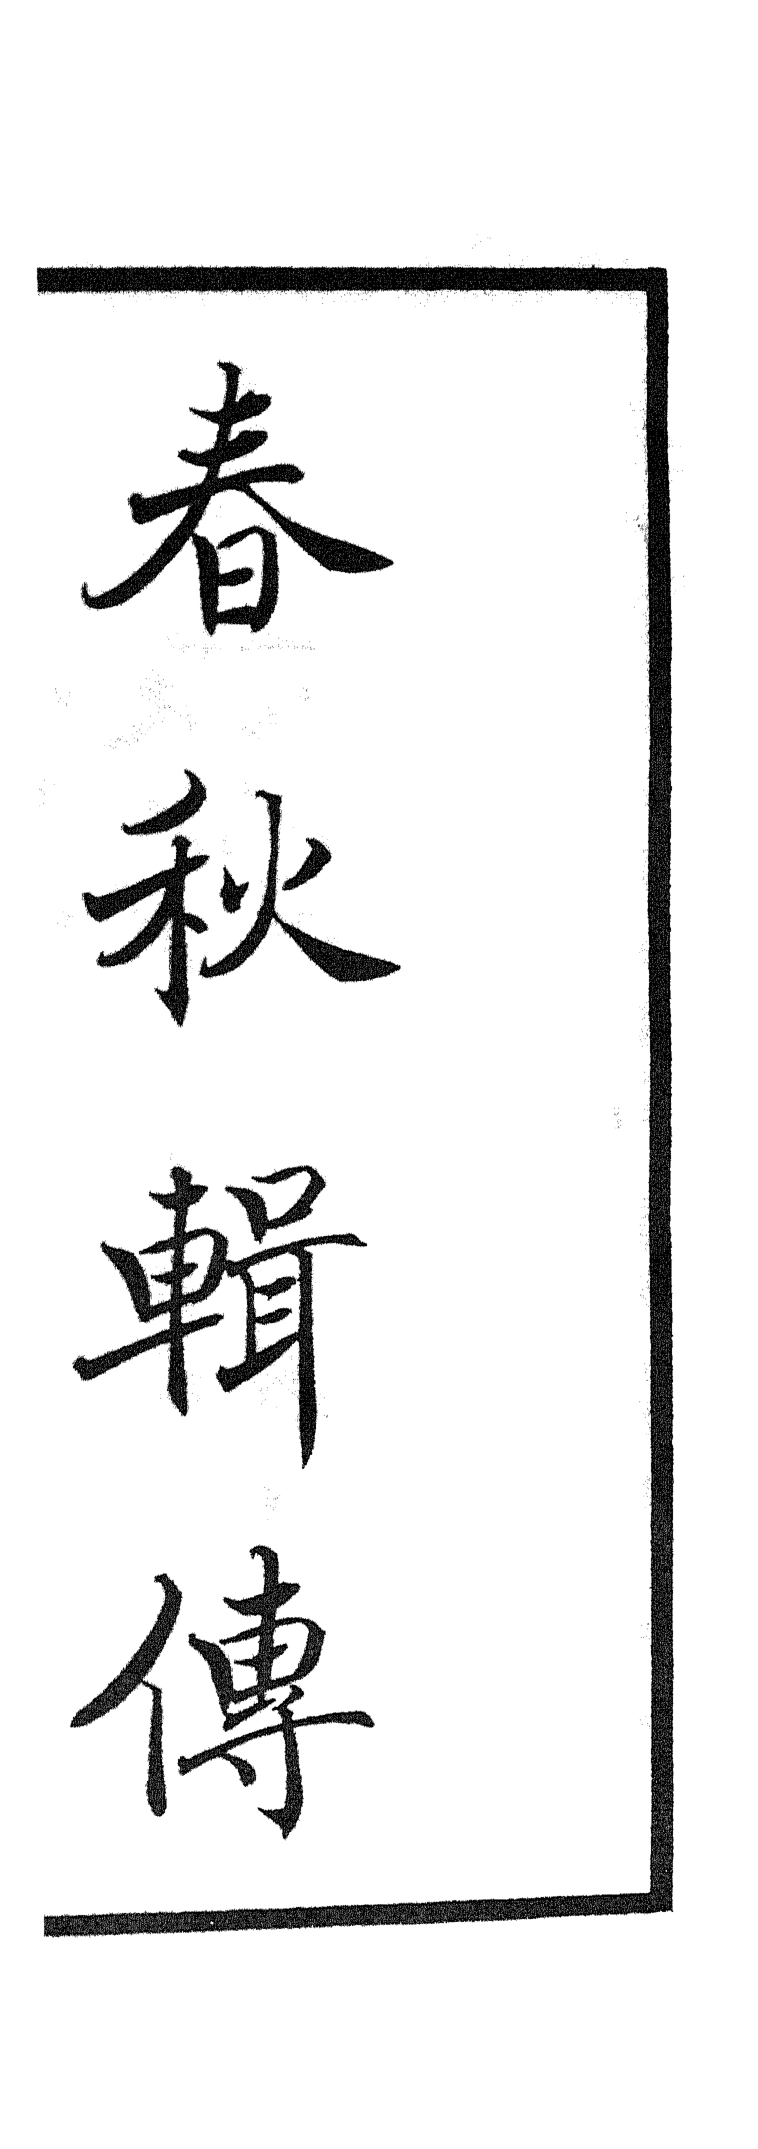 春秋輯傳